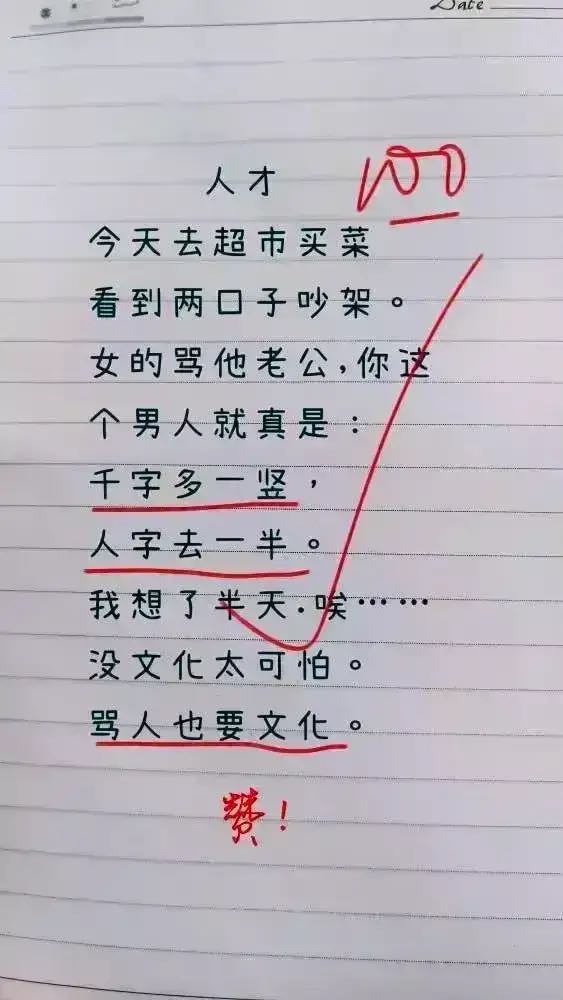 Date
人才
100
今天去超市买菜
看到两口子吵架。
女的骂他老公,你这
个男人就真是:
千字多一竖,
人字去一半。
我想了半天.唉……
没文化太可怕。
骂人也要文化。
赞!